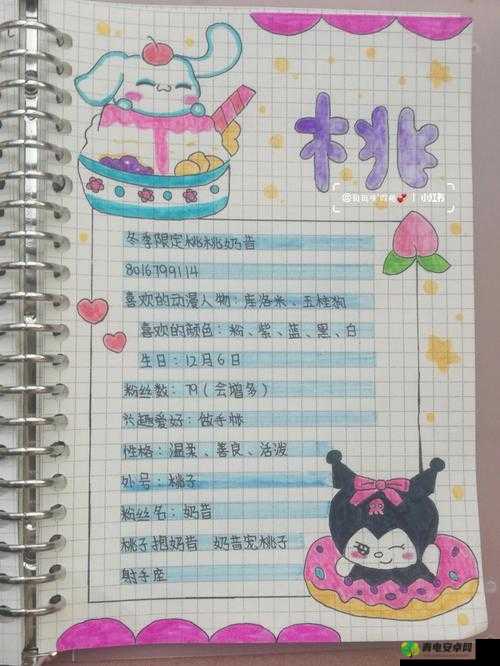 桃
冬季限定桃桃奶昔
8016799114
喜欢的动漫人物：库洛米、玉桂狗
喜欢的颜色：粉、紫、蓝、黑、白
生日：12月6日
粉丝数：79（会增多）
兴趣爱好：做手帐
性格：温柔、善良、活泼
外号：桃子
粉丝名：奶昔
桃子抱奶昔 奶昔宠桃子
射手座
小红书
青电安卓网